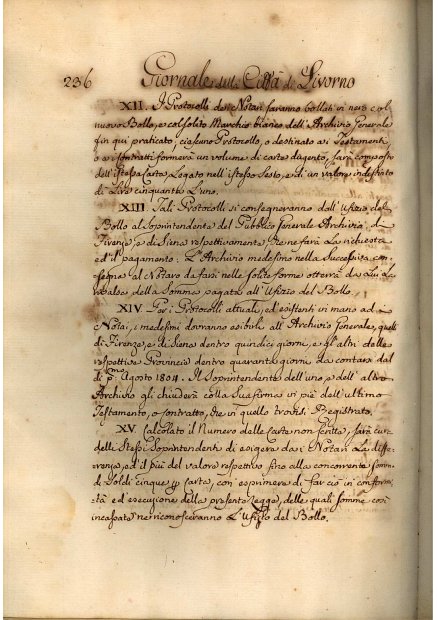 236 Giornale della Città di Livorno
XII. I Protocolli dei Notari saranno bollati in nero col
nuovo Bollo, e col solito Marchio bianco dell'Archivio Generale
fin qui praticato, ciascuno Protocollo, o destinato ai Testamenti
o ai Contratti formerà un volume di carte dugento, sarà composto
dell'istessa Carta Legato nell'istesso Sesto, e di un valore indistinto
di Lire cinquanta L'uno.
XIII. Tali Protocolli si consegneranno dall'Ufizio del
Bollo al Soprintendente del Pubblico Generale Archivio di
Firenze, e di Siena respettivamente, che ne farà La richiesta
ed il pagamento: L'Archivio medesimo nella Successiva con-
segna al Notaro da farsi nelle solite forme otterrà da Lui La
valuta della Somma pagata all'Ufizio del Bollo.
XIV. Per i Protocolli attuali, ed esistenti in mano ad
Notai, i medesimi dovranno esibirli all'Archivio Generale, quelli
di Firenze, e di Siena dentro quindici giorni, e gli altri delle
respettive Provincie dentro quaranta giorni da contarsi dal
di p.mo Agosto 1804. Il Soprintendente dell'uno, e dell'altro
Archivio gli chiuderà colla Sua firma in piè dell'ultimo
Testamento, o Contratto, che in quello trovisi Registrato.
XV. Calcolato il Numero delle Carte non scritte, sarà cura
delli Stessi Soprintendenti di esigere dai Notari La diffe-
renza, ed il più del valore respettivo fino alla concorrente somma
di Soldi cinque p carta, con esprimere di far ciò in conformi-
tà ed esecuzione della presente Legge, delle quali somme così
incassate ne riconosceranno L'Ufizio del Bollo.